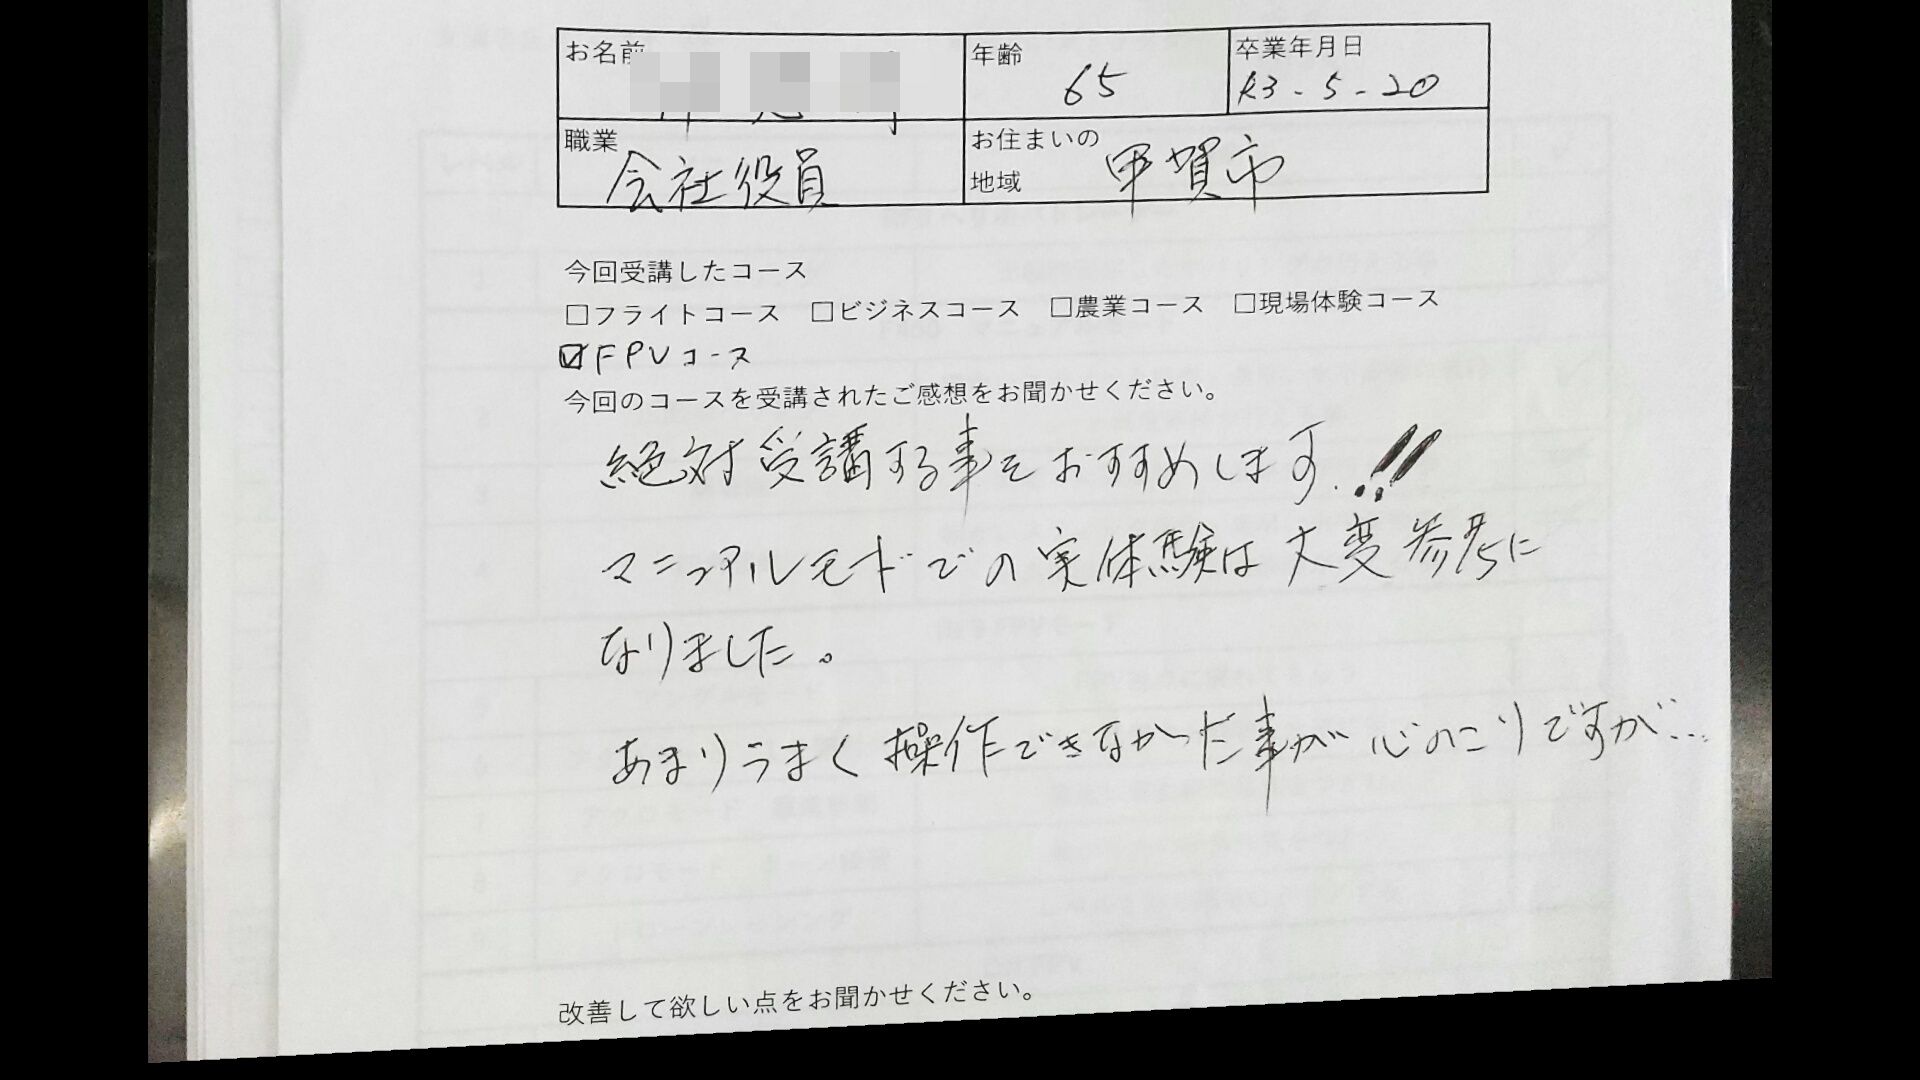 お名前
年齢 65
卒業年月日 R3-5-20
職業 会社役員
お住まいの地域 甲賀市
今回受講したコース
□フライトコース □ビジネスコース □農業コース □現場体験コース
☑FPVコース
今回のコースを受講されたご感想をお聞かせください。
絶対受講する事をおすすめします!!
マニュアルモードでの実体験は大変参考に
なりました。
あまりうまく操作できなかった事が心のこりですが...
改善して欲しい点をお聞かせください。